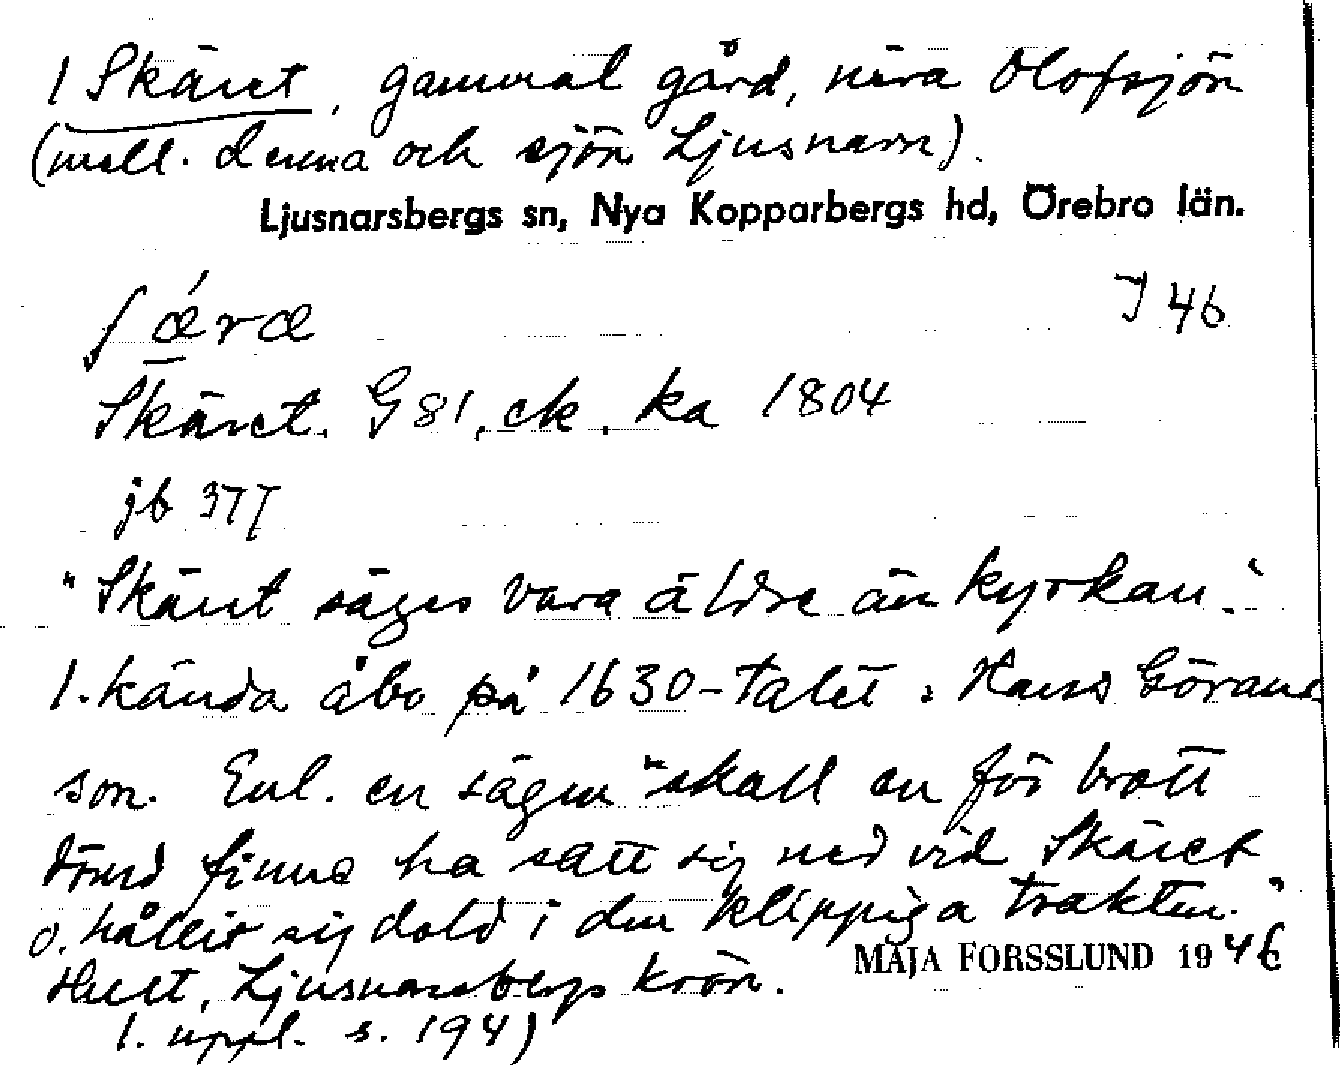 1 Skäret, gammal gård, nära Olofsjön
(mell. denna och sjön Ljusnarn).
Ljusnarsbergs sn, Nya Kopparbergs hd, Örebro län.
ʃǽræ
J 46
Skäret. G 81, ek. ka 1804
jb 377
"Skäret säges vara äldre än kyrkan."
1. kända åbo på 1630-talet: Hans Görans
son. Enl. en sägen "skall en för brott
dömd finne ha satt sig ned vid Skäret
o. hållit sig dold i den klippiga trakten."
Hult, Ljusnarsbergs krön.
MAJA FORSSLUND 1946
1. uppl. s. 194)